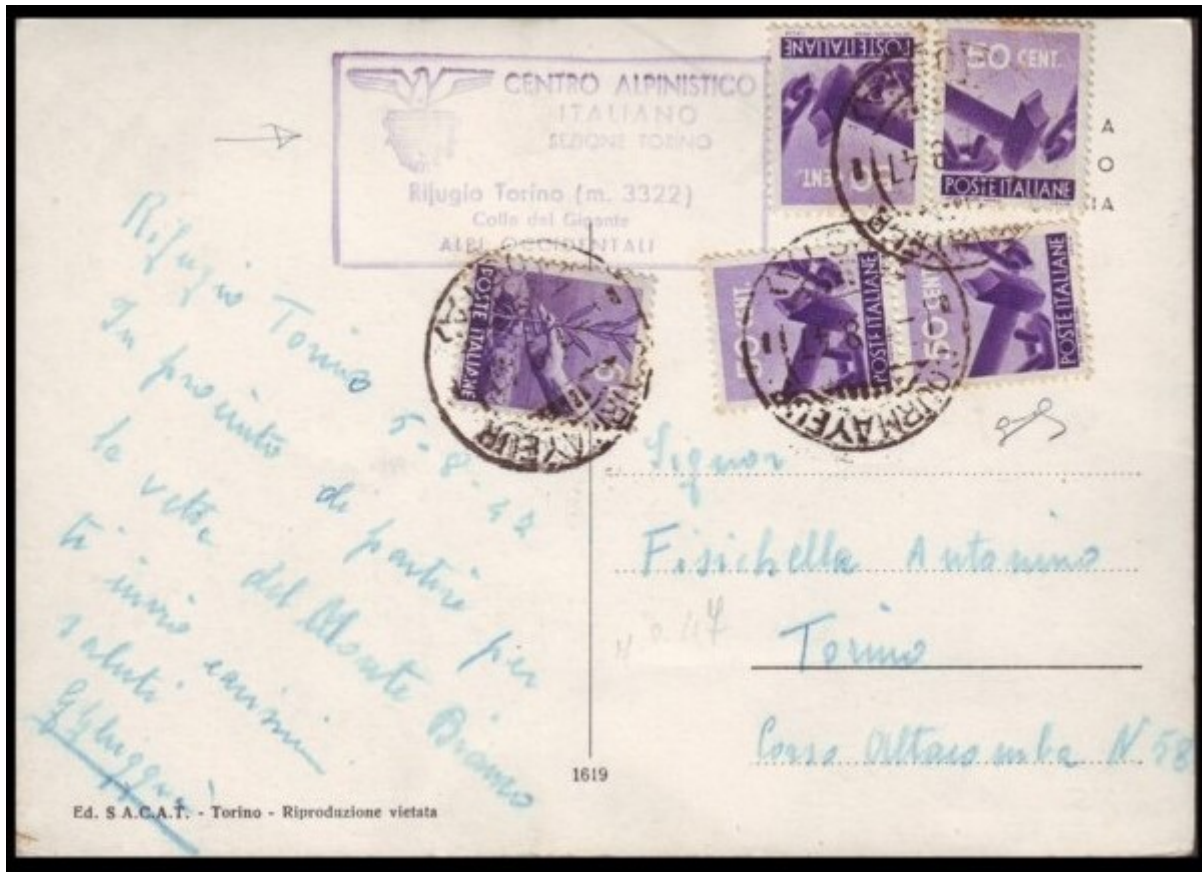 CENTRO ALPINISTICO
ITALIANO
SEZIONE TORINO
Rifugio Torino (m. 3322)
Colle del Gigante
ALPI OCCIDENTALI
POSTE ITALIANE
50 CENT.
50 CENT.
POSTE ITALIANE
A
O
IA
POSTE ITALIANE
50 CENT.
POSTE ITALIANE
50 CENT.
POSTE ITALIANE
COURMAYEUR
Rifugio Torino 5-8-47
In procinto di partire per
la vetta del Monte Bianco
ti invio carissimi
saluti
Signor
Fisichella Antonino
Torino
Corso Altacomba N 58
1619
Ed. S A.C.A.T. - Torino - Riproduzione vietata